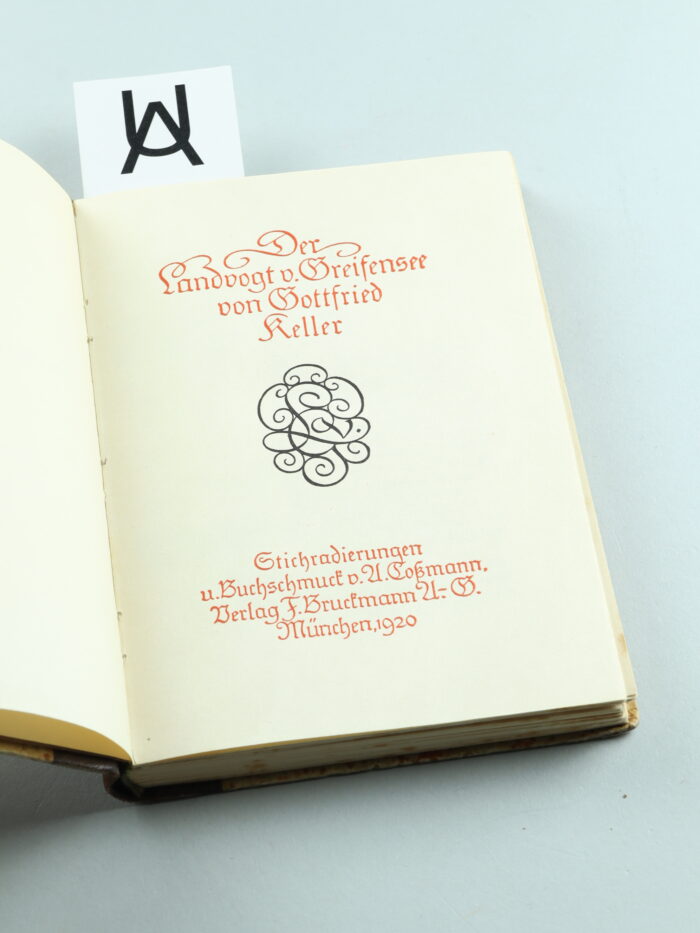 UA
Der
Landvogt v. Greifensee
von Gottfried
Keller
Stichradierungen
u. Buchschmuck v. A. Coßmann.
Verlag F. Bruckmann A.-G.
München, 1920